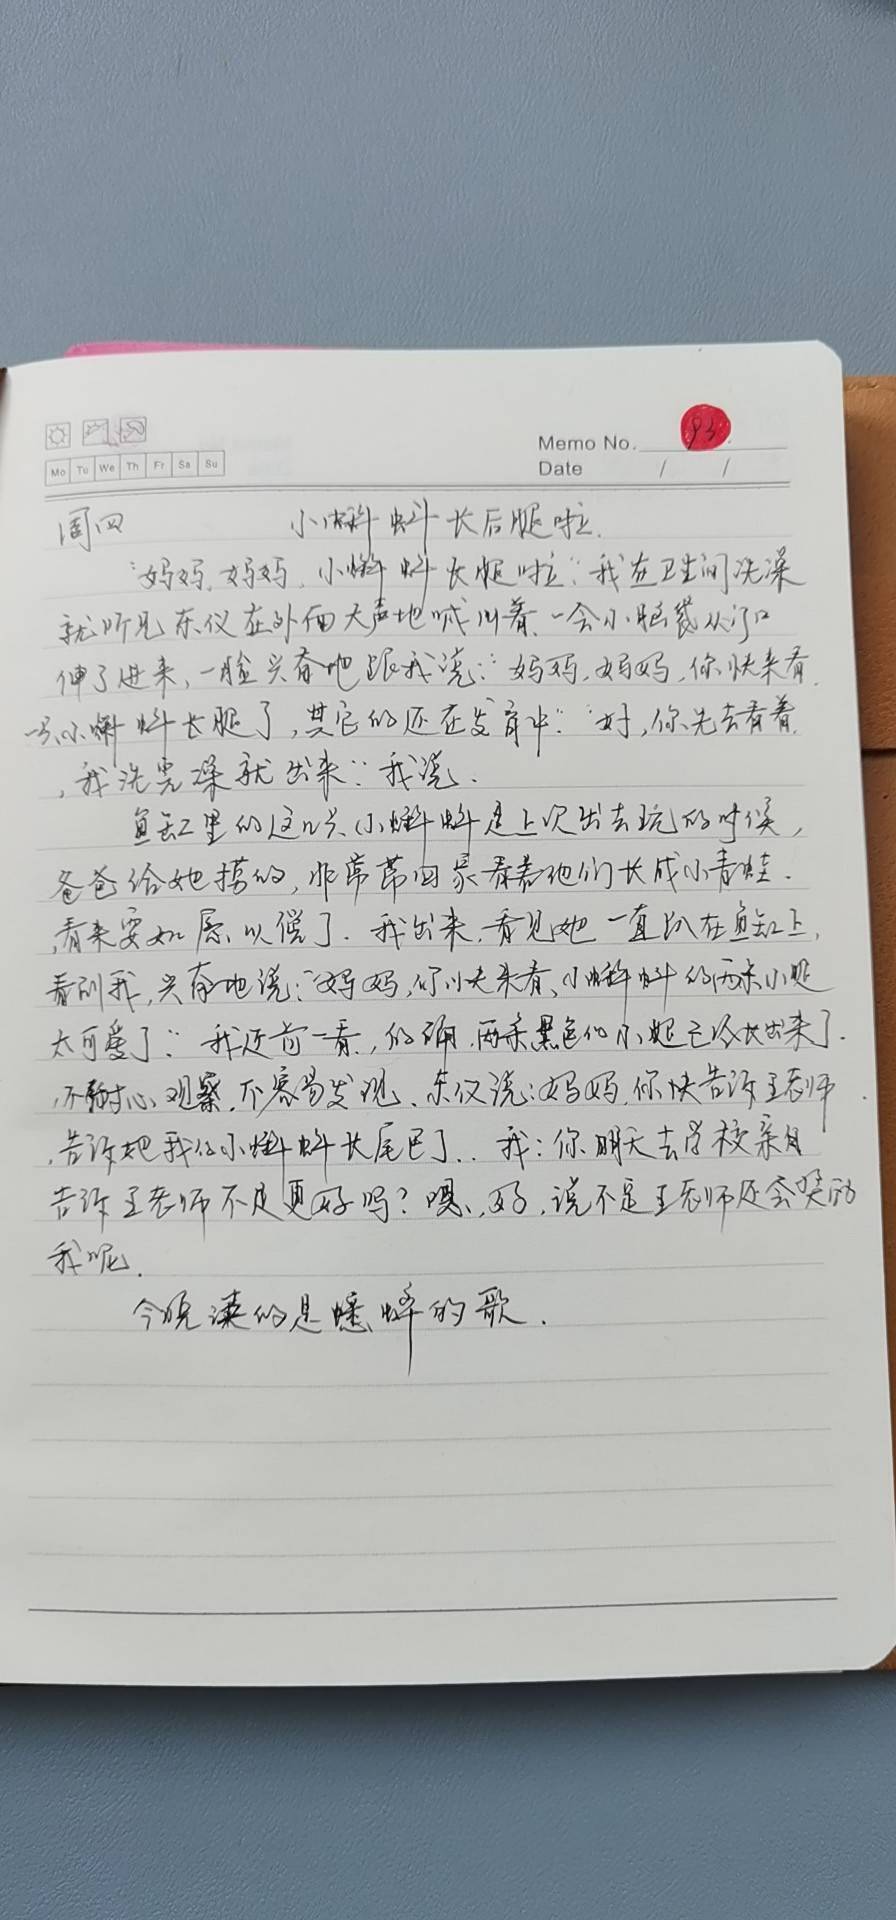 Memo No. 93.
Mo Tu We Th Fr Sa Su
Date / /
周四 小蝌蚪长后腿啦.
“妈妈,妈妈,小蝌蚪长腿啦”我在卫生间洗澡
就听见东仪在外面大声地喊叫着,一会小脑袋从门口
伸了进来,一脸兴奋地跟我说:“妈妈,妈妈,你快来看,
一只小蝌蚪长腿了,其它的还在发育中”“好,你先去看着
,我洗完澡就出来”我说.
鱼缸里的这几只小蝌蚪是上次出去玩的时候,
爸爸给她捞的,非常带回家看着他们长成小青蛙.
,看来要如愿以偿了.我出来,看见她一直趴在鱼缸上,
看到我,兴奋地说:“妈妈,你快来看,小蝌蚪的两条小腿
太可爱了”我近前一看,的确,两条黑色的小腿已经长出来了.
,不耐心观察,不容易发现.东仪说:妈妈,你快告诉王老师
,告诉她我的小蝌蚪长尾巴了..我:你明天去学校亲自
告诉王老师不是更好吗?嗯,好,说不定王老师还会奖励
我呢.
今晚读的是蟋蟀的歌.